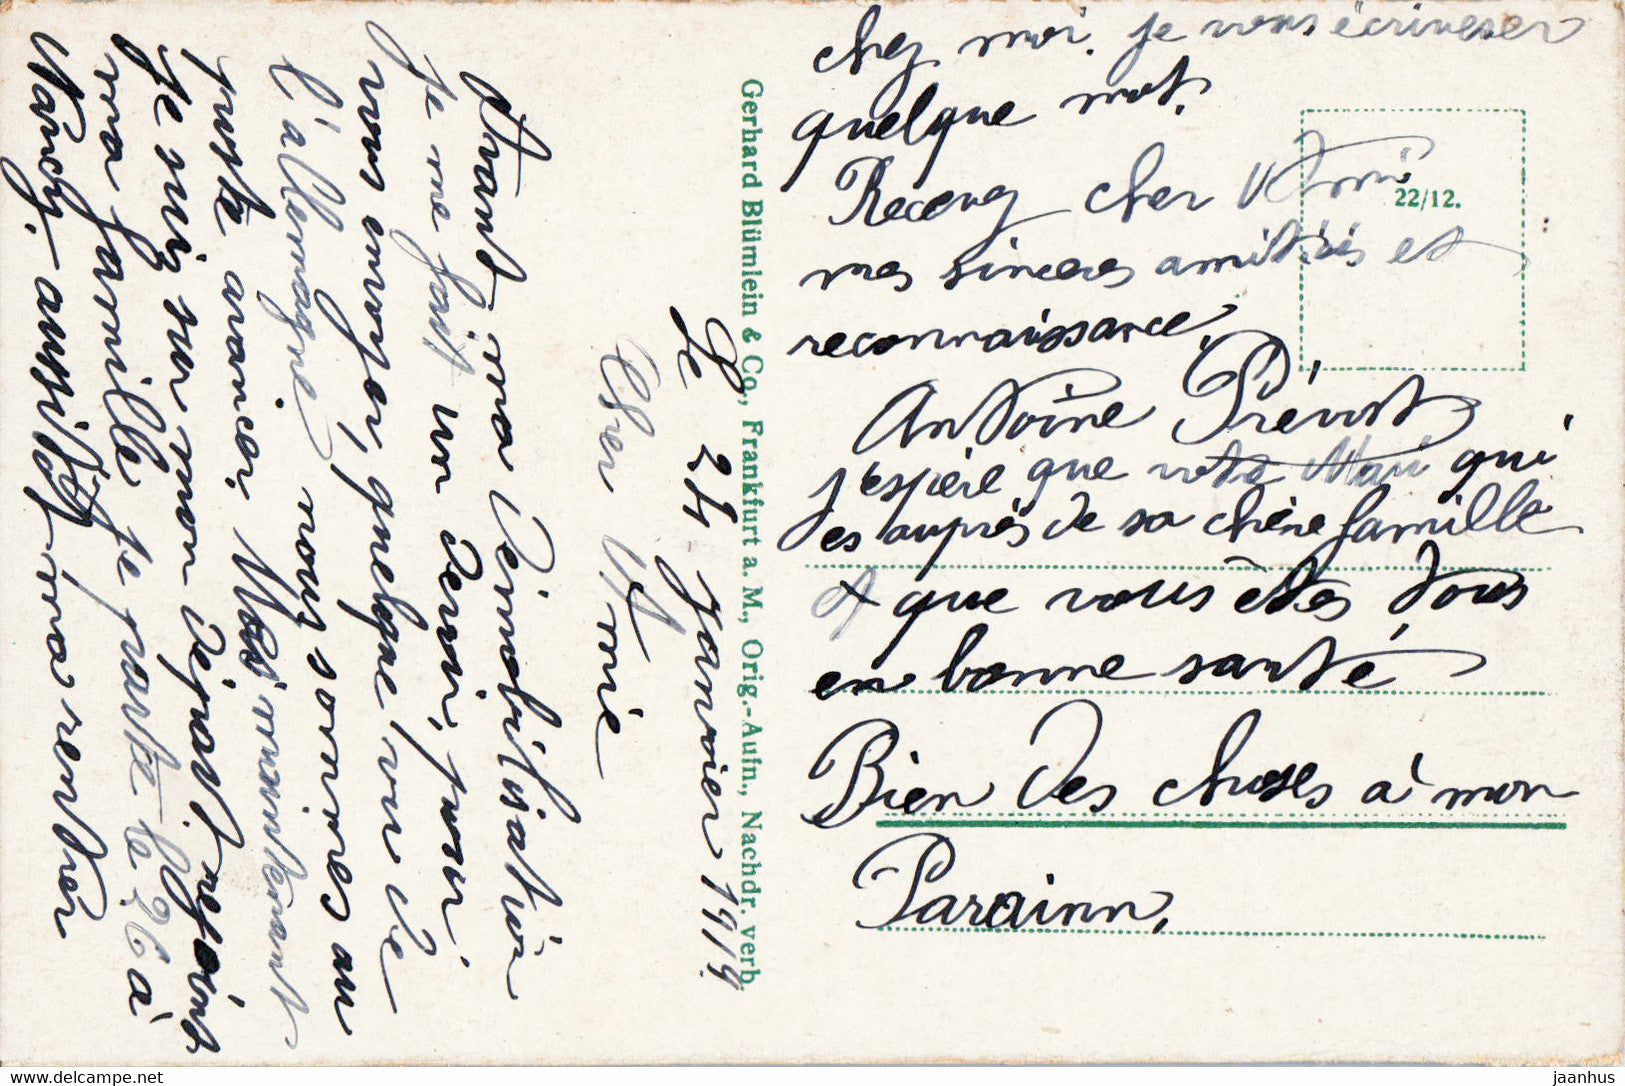 Le 24 Janvier 1919
Cher Amie
Avant ma Démobilisation
je me fait un Devoir, pour
vous envoyer, quelque vue de
l'allemagne, nous sommes au
juste avancer, Mais maintenant
je suis sur mon Départ. rejoint
ma famille je parte le 26 à
Nancy, aussitôt ma rentrer
chez moi. je vous écriverer
quelque mot.
Recevez cher Ami
mes sinceres amitiés et
reconnaissance,
Antoine Prévost
j'espère que votre Mari qui
es auprès de sa chère famille
et que vous êtes tous
en bonne santé
Bien des choses à mon
Parainn,
Gerhard Blümlein & Co., Frankfurt a. M., Orig.-Aufn., Nachdr. verb.
22/12.
delcampe.net
jaanhus